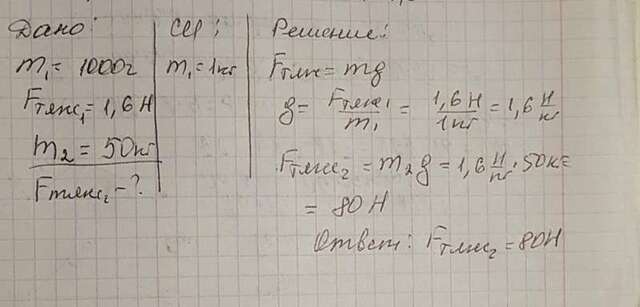 Дано:
m₁ = 1000г
Fтяж₁ = 1,6 Н
m₂ = 50кг
Fтяж₂ - ?
СИ:
m₁ = 1кг
Решение:
Fтяж = mg
g = Fтяж₁/m₁ = 1,6 Н/1кг = 1,6 Н/кг
Fтяж₂ = m₂g = 1,6 Н/кг · 50кг =
= 80 Н
Ответ: Fтяж₂ = 80Н